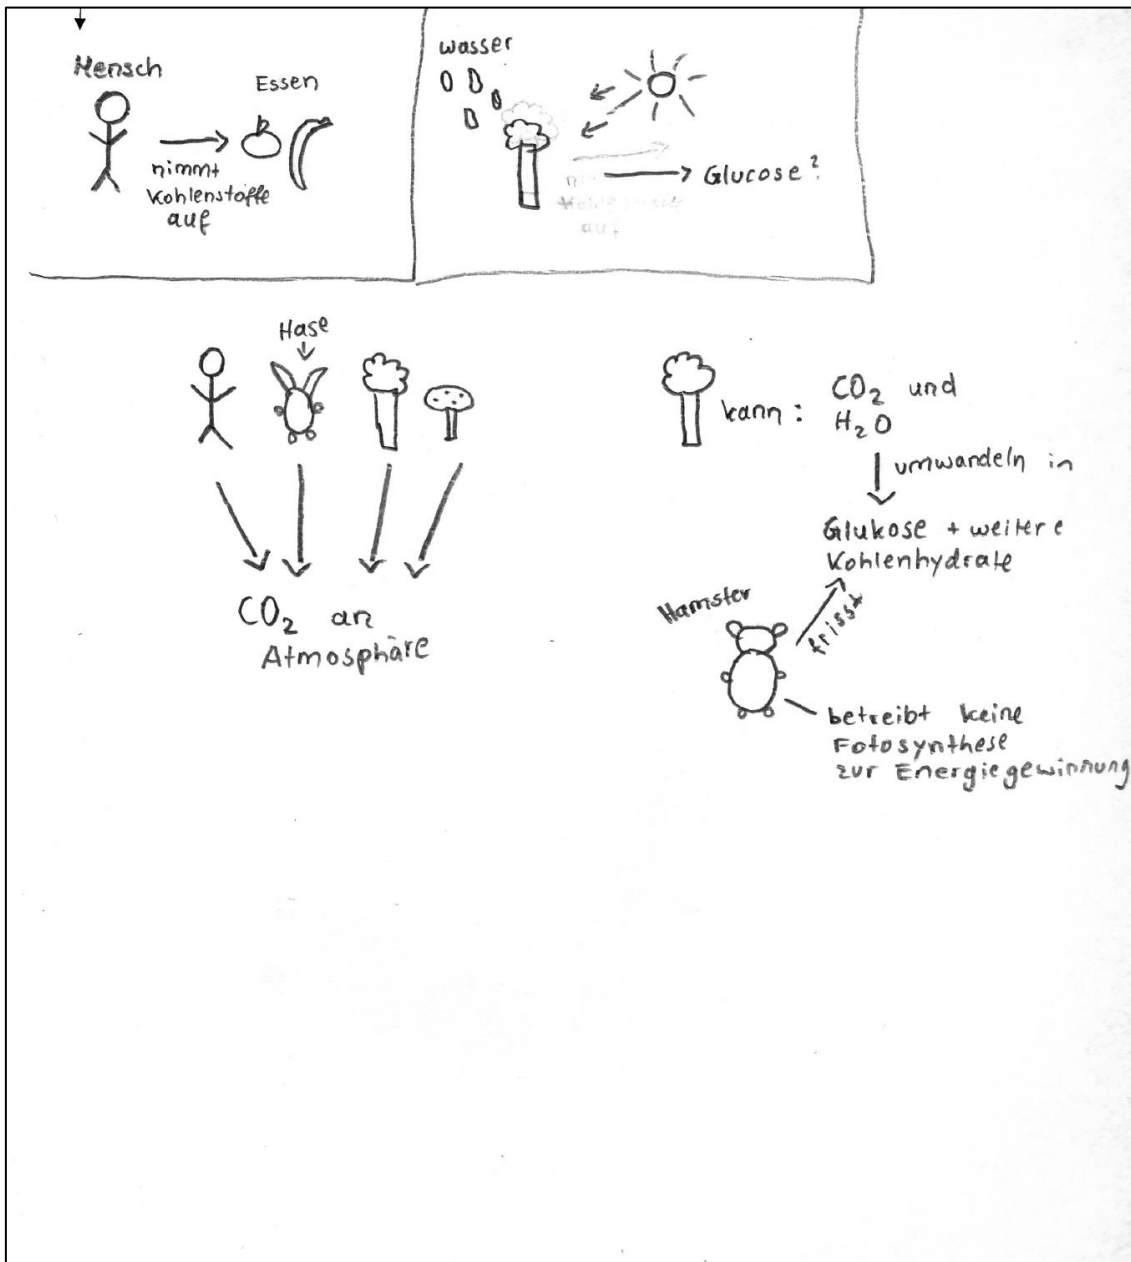 Mensch
Essen
nimmt
Kohlenstoffe
auf
wasser
Glucose?
Hase
CO₂ an
Atmosphäre
kann: CO₂ und
H₂O
umwandeln in
Glukose + weitere
Kohlenhydrate
Hamster
frisst
betreibt keine
Fotosynthese
zur Energiegewinnung